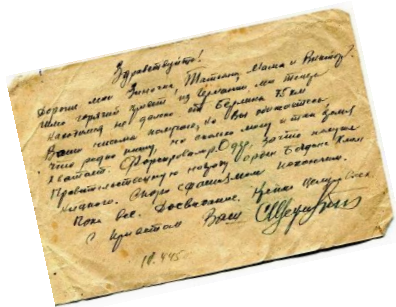 Здравствуйте!
Дорогие мои Зиночка, Татьяна, Мама и Виктор!
Шлю горячий привет из Германии. Мы теперь
находимся не далеко от Берлина 75 км
Ваши письма получаю, но Вы обижаетесь
что редко пишу, но сколько могу и так время
не хватает. Форсировал р. Одер, за что получил
Правительственную награду орден Богдана Хмель
ницкого. Скоро с фашизмом покончим.
Пока все. Досвидание. Крепко целую Всех
С приветом Ваш